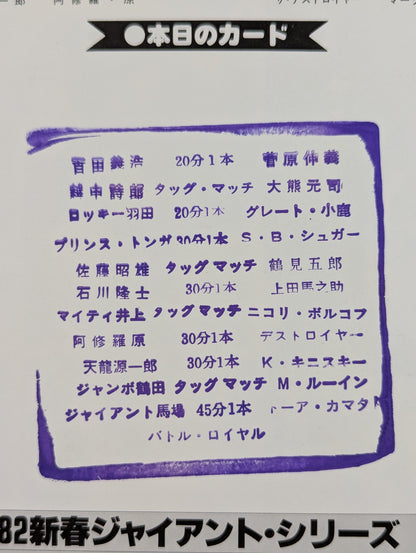 ●本日のカード
百田義浩 20分1本 菅原伸義
越中詩郎 タッグ・マッチ 大熊元司
ロッキー羽田 20分1本 グレート・小鹿
プリンス・トンガ 30分1本 S・B・シュガー
佐藤昭雄 タッグマッチ 鶴見五郎
石川隆士 30分1本 上田馬之助
マイティ井上 タッグマッチ ニコリ・ボルコフ
阿修羅原 30分1本 デストロイヤー
天龍源一郎 30分1本 K・キニスキー
ジャンボ鶴田 タッグマッチ M・ルーイン
ジャイアント馬場 45分1本 トーア・カマタ
バトル・ロイヤル
82新春ジャイアント・シリーズ